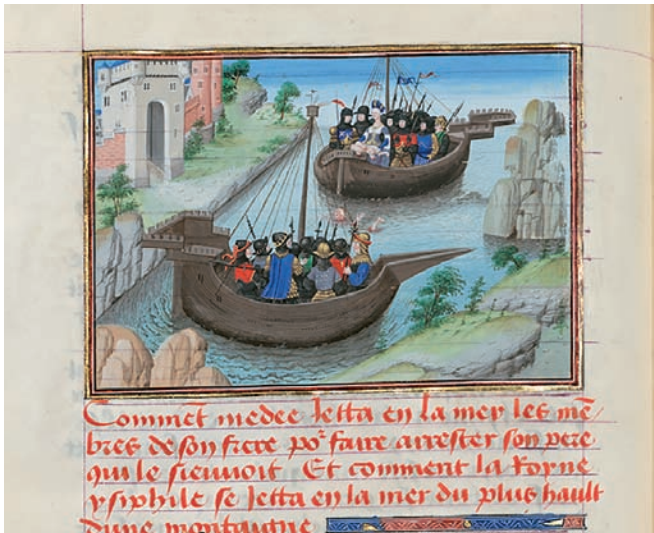 Comment medee Jetta en la mer les mē
bres de son frere po᷑ faire arrester son pere
qui le sieuuoit Et comment la Royne
ysiphile se Jetta en la mer du plus hault
dune montaigne